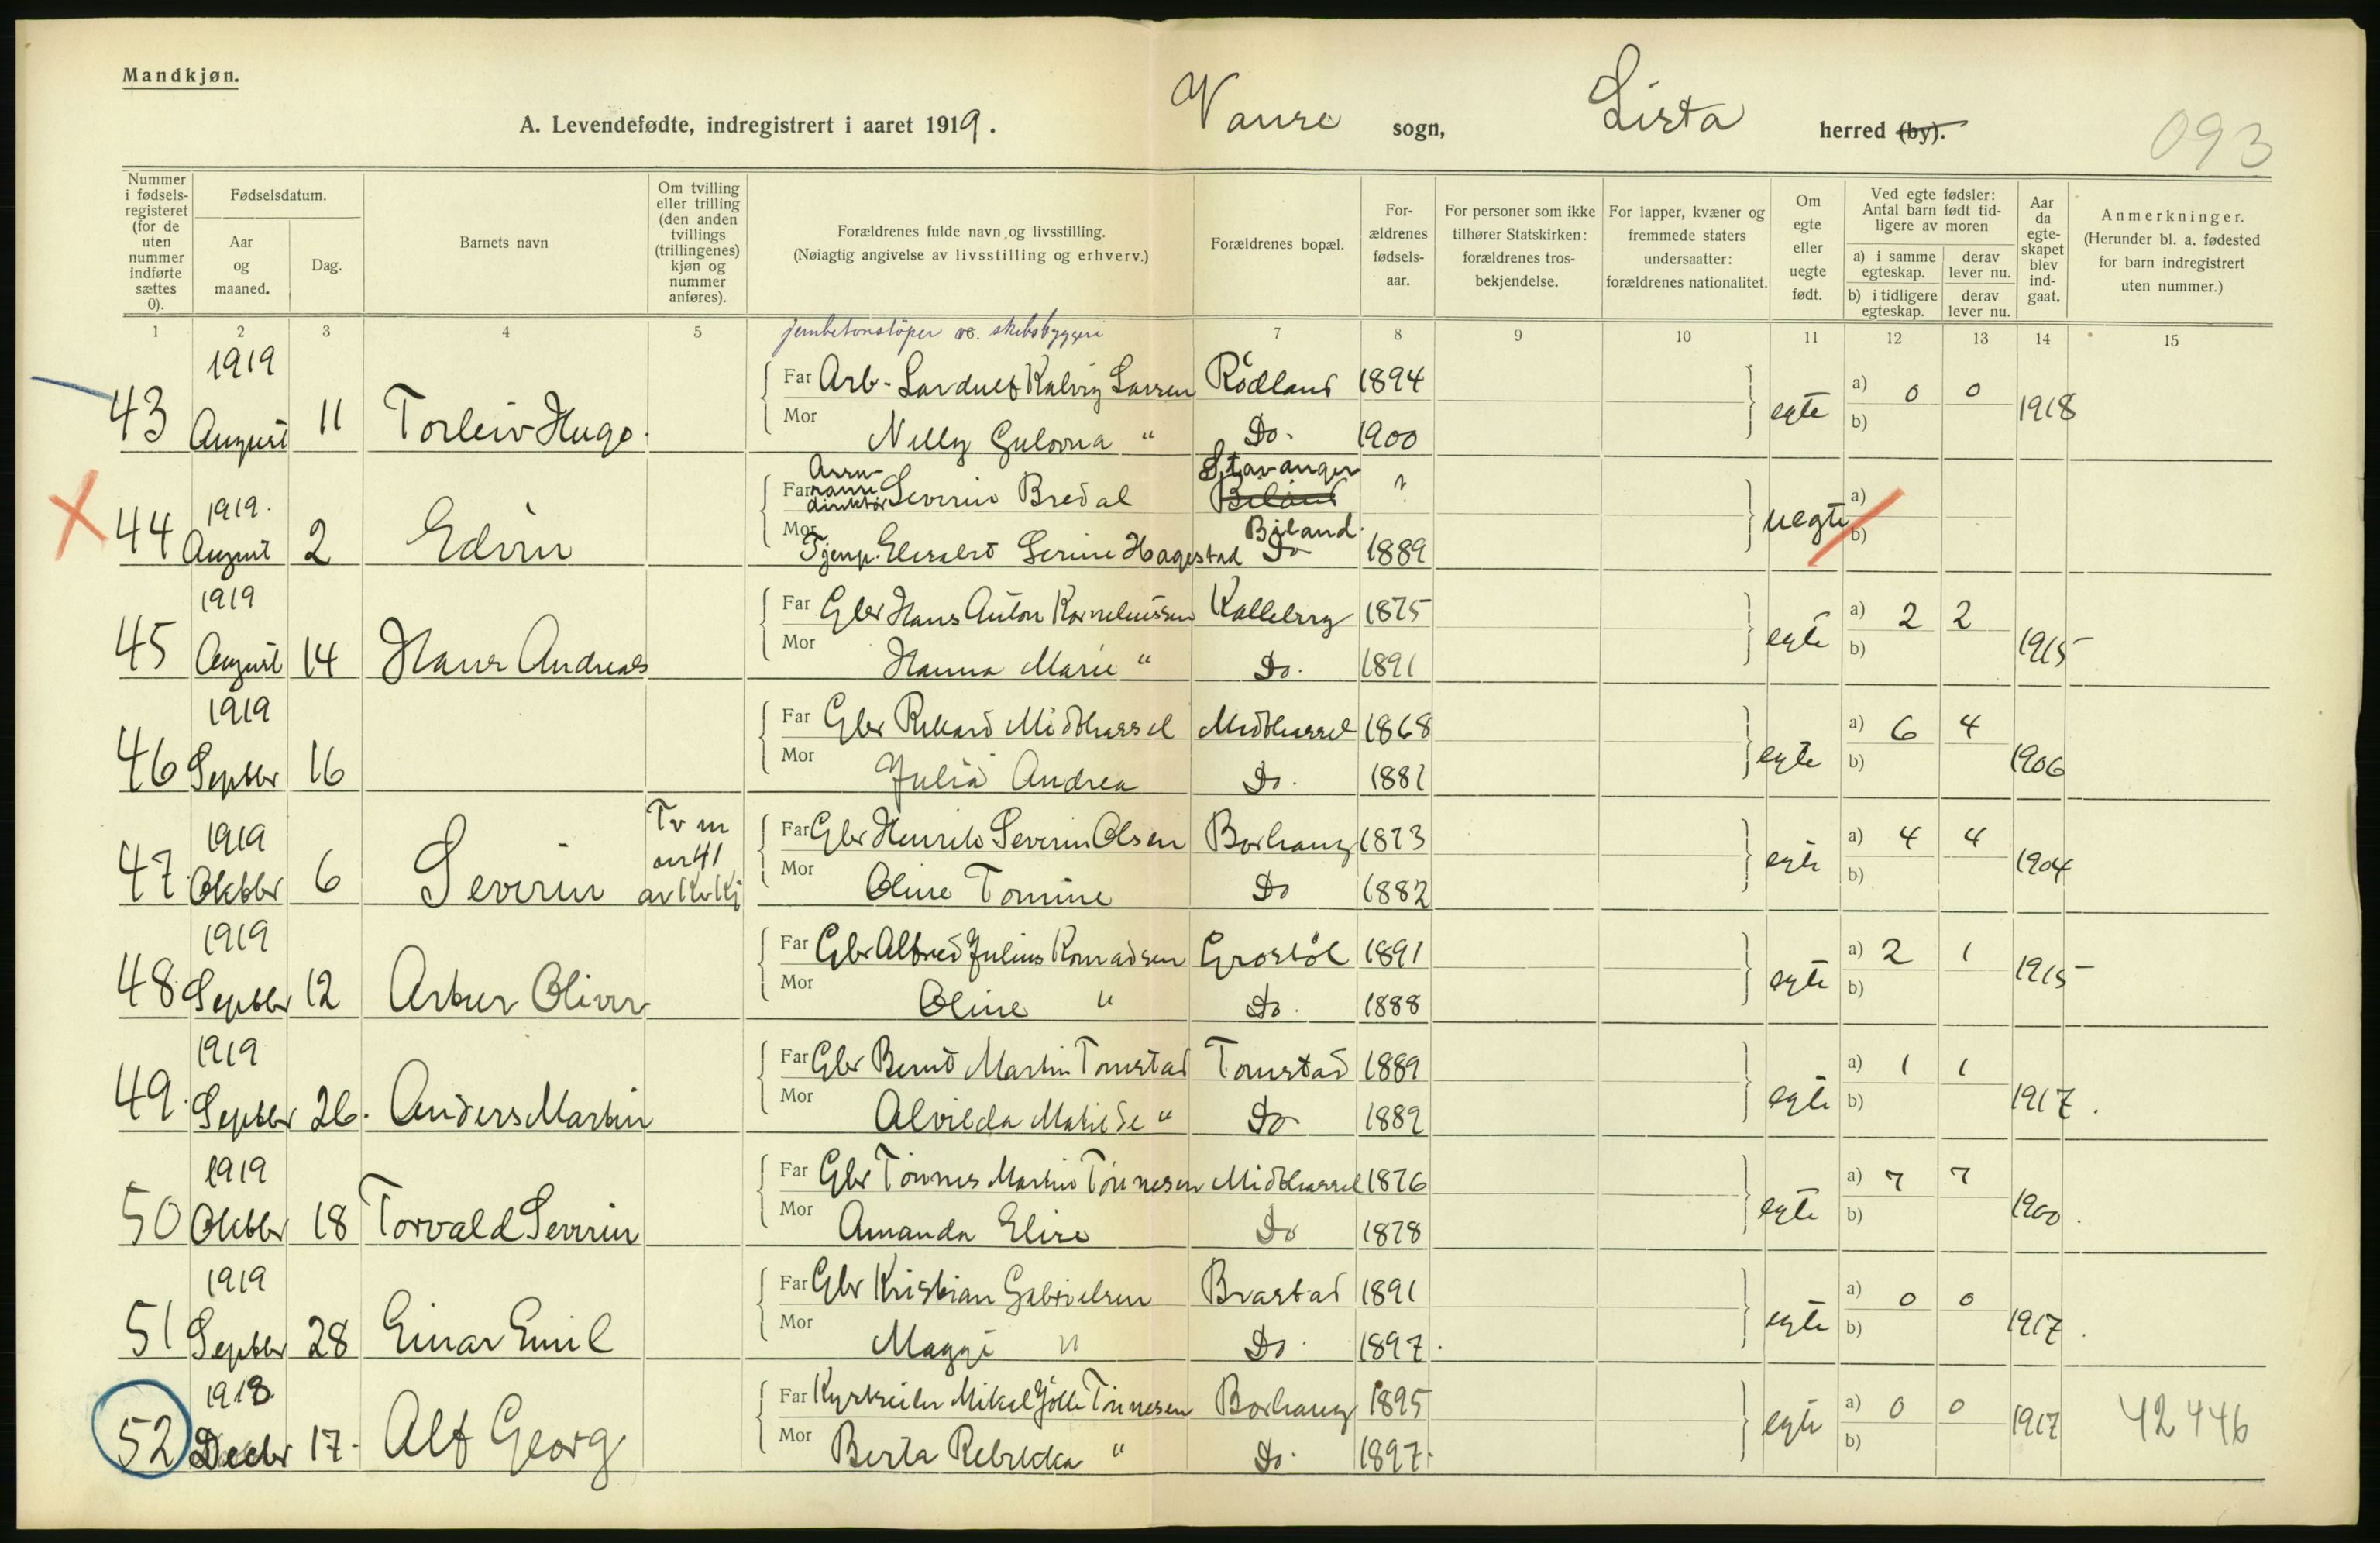 Mandkjøn.
A. Levendefødte, indregistrert i aaret 1919. Vanse sogn, Lista herred (by).
093
Nummer i fødselsregisteret (for de uten nummer indførte sættes 0).
Fødselsdatum.
Aar og maaned.
Dag.
Barnets navn
Om tvilling eller trilling (den anden tvillings (trillingenes) kjøn og nummer anføres).
Forældrenes fulde navn og livsstilling.
(Nøiagtig angivelse av livsstilling og erhverv.)
Forældrenes bopæl.
Forældrenes fødselsaar.
For personer som ikke tilhører Statskirken: forældrenes trosbekjendelse.
For lapper, kvæner og fremmede staters undersaatter: forældrenes nationalitet.
Om egte eller uegte født.
Ved egte fødsler: Antal barn født tidligere av moren
a) i samme egteskap. derav lever nu.
b) i tidligere egteskap. derav lever nu.
Aar da egteskapet blev indgaat.
Anmerkninger.
(Herunder bl. a. fødested for barn indregistrert uten nummer.)
1 2 3 4 5 7 8 9 10 11 12 13 14 15
jernbetonstöper ved skibsbyggeri
1919
43 August 11 Torleiv Hugo. Far Arb. Kalvig Larsen Rödland 1894 egte a) 0 0 1918
Mor Nelly " Do. 1900 b)
1919.
44 August 2 Edvin Far direktör Severin Bredal Stavanger Biland ? uegte a)
Mor Tjenp. Elisabet Serine Hagestad Biland Do 1889 b)
1919
45 August 14 Hans Andreas Far Gbr Hans Anton Korneliussen Kalleberg 1875 egte a) 2 2 1915
Mor Hanna Marie " Do. 1891 b)
1919
46 Septbr 16 Far Gbr Rikard Midthassel Midthassel 1868 egte a) 6 4 1906
Mor Julia Andrea Do. 1881 b)
1919
47 Oktbr 6 Severin Tv m nr 41 av Kv Kj Far Gbr Henrik Severin Olsen Borhaug 1873 egte a) 4 4 1904
Mor Oline Tomine Do 1882 b)
1919
48 Septbr 12 Artur Oliver Far Gbr Alfred Julius Konradsen Grostöl 1891 egte a) 2 1 1915
Mor Oline " Do. 1888 b)
1919
49. Septbr 26. Anders Martin Far Gbr Bernt Martin Tomstad Tomstad 1889 egte a) 1 1 1917.
Mor Alvilda Matilde " Do 1889 b)
1919
50 Oktbr 18 Torvald Severin Far Gbr Tönnes Martin Tönnesen Midthassel 1876 egte a) 7 7 1900.
Mor Amanda Elise Do 1878 b)
1919
51 Septbr 28 Einar Emil Far Gbr Kristian Gabrielsen Brastad 1891 egte a) 0 0 1917.
Mor Maggi " Do. 1897. b)
1918
52 Decbr 17. Alf Georg Far Mikal Tönnesen Borhaug 1895 egte a) 0 0 1917 42446
Mor Berta Rebekka " Do. 1897. b)